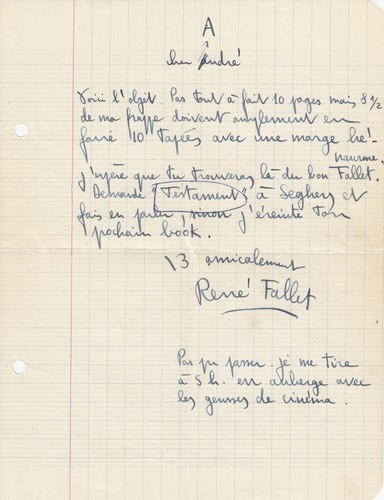 A
cher André
Voici l'objet. Pas tout à fait 10 pages mais 8 1/2
de ma frappe doivent amplement en
faire 10 tapées avec une marge hé!
naurme.
j'espère que tu trouveras là du bon Fallet.
Demande "Testament" à Seghers et
fais en parler, sinon j'éreinte ton
prochain book.
amicalement
René Fallet
Pas pu passer. je me tire
à 5 h. en auberge avec
les gensses de cinéma.